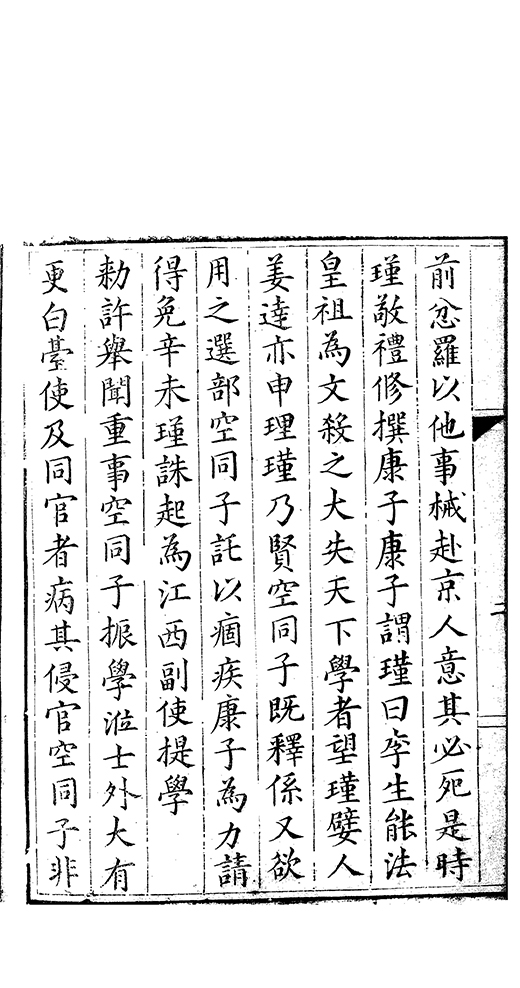 前忿羅以他事械赴京人意其必死是時
瑾敬禮修撰康子康子謂瑾曰李生能法
皇祖為文殺之大失天下學者望瑾嬖人
姜達亦申理瑾乃賢空同子既釋係又欲
用之選部空同子託以痼疾康子為力請
得免辛未瑾誅起為江西副使提學
勑許舉聞重事空同子振學涖士外大有
更白臺使及同官者病其侵官空同子非